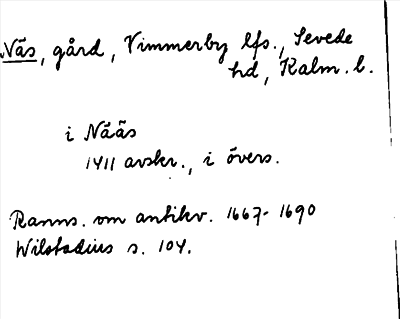 Näs, gård, Vimmerby lfs., Sevede
hd, Kalm. l.
i Nääs
1411 avskr., i övers.
Ranns. om antikv. 1667-1690
Wilstadius s. 104.